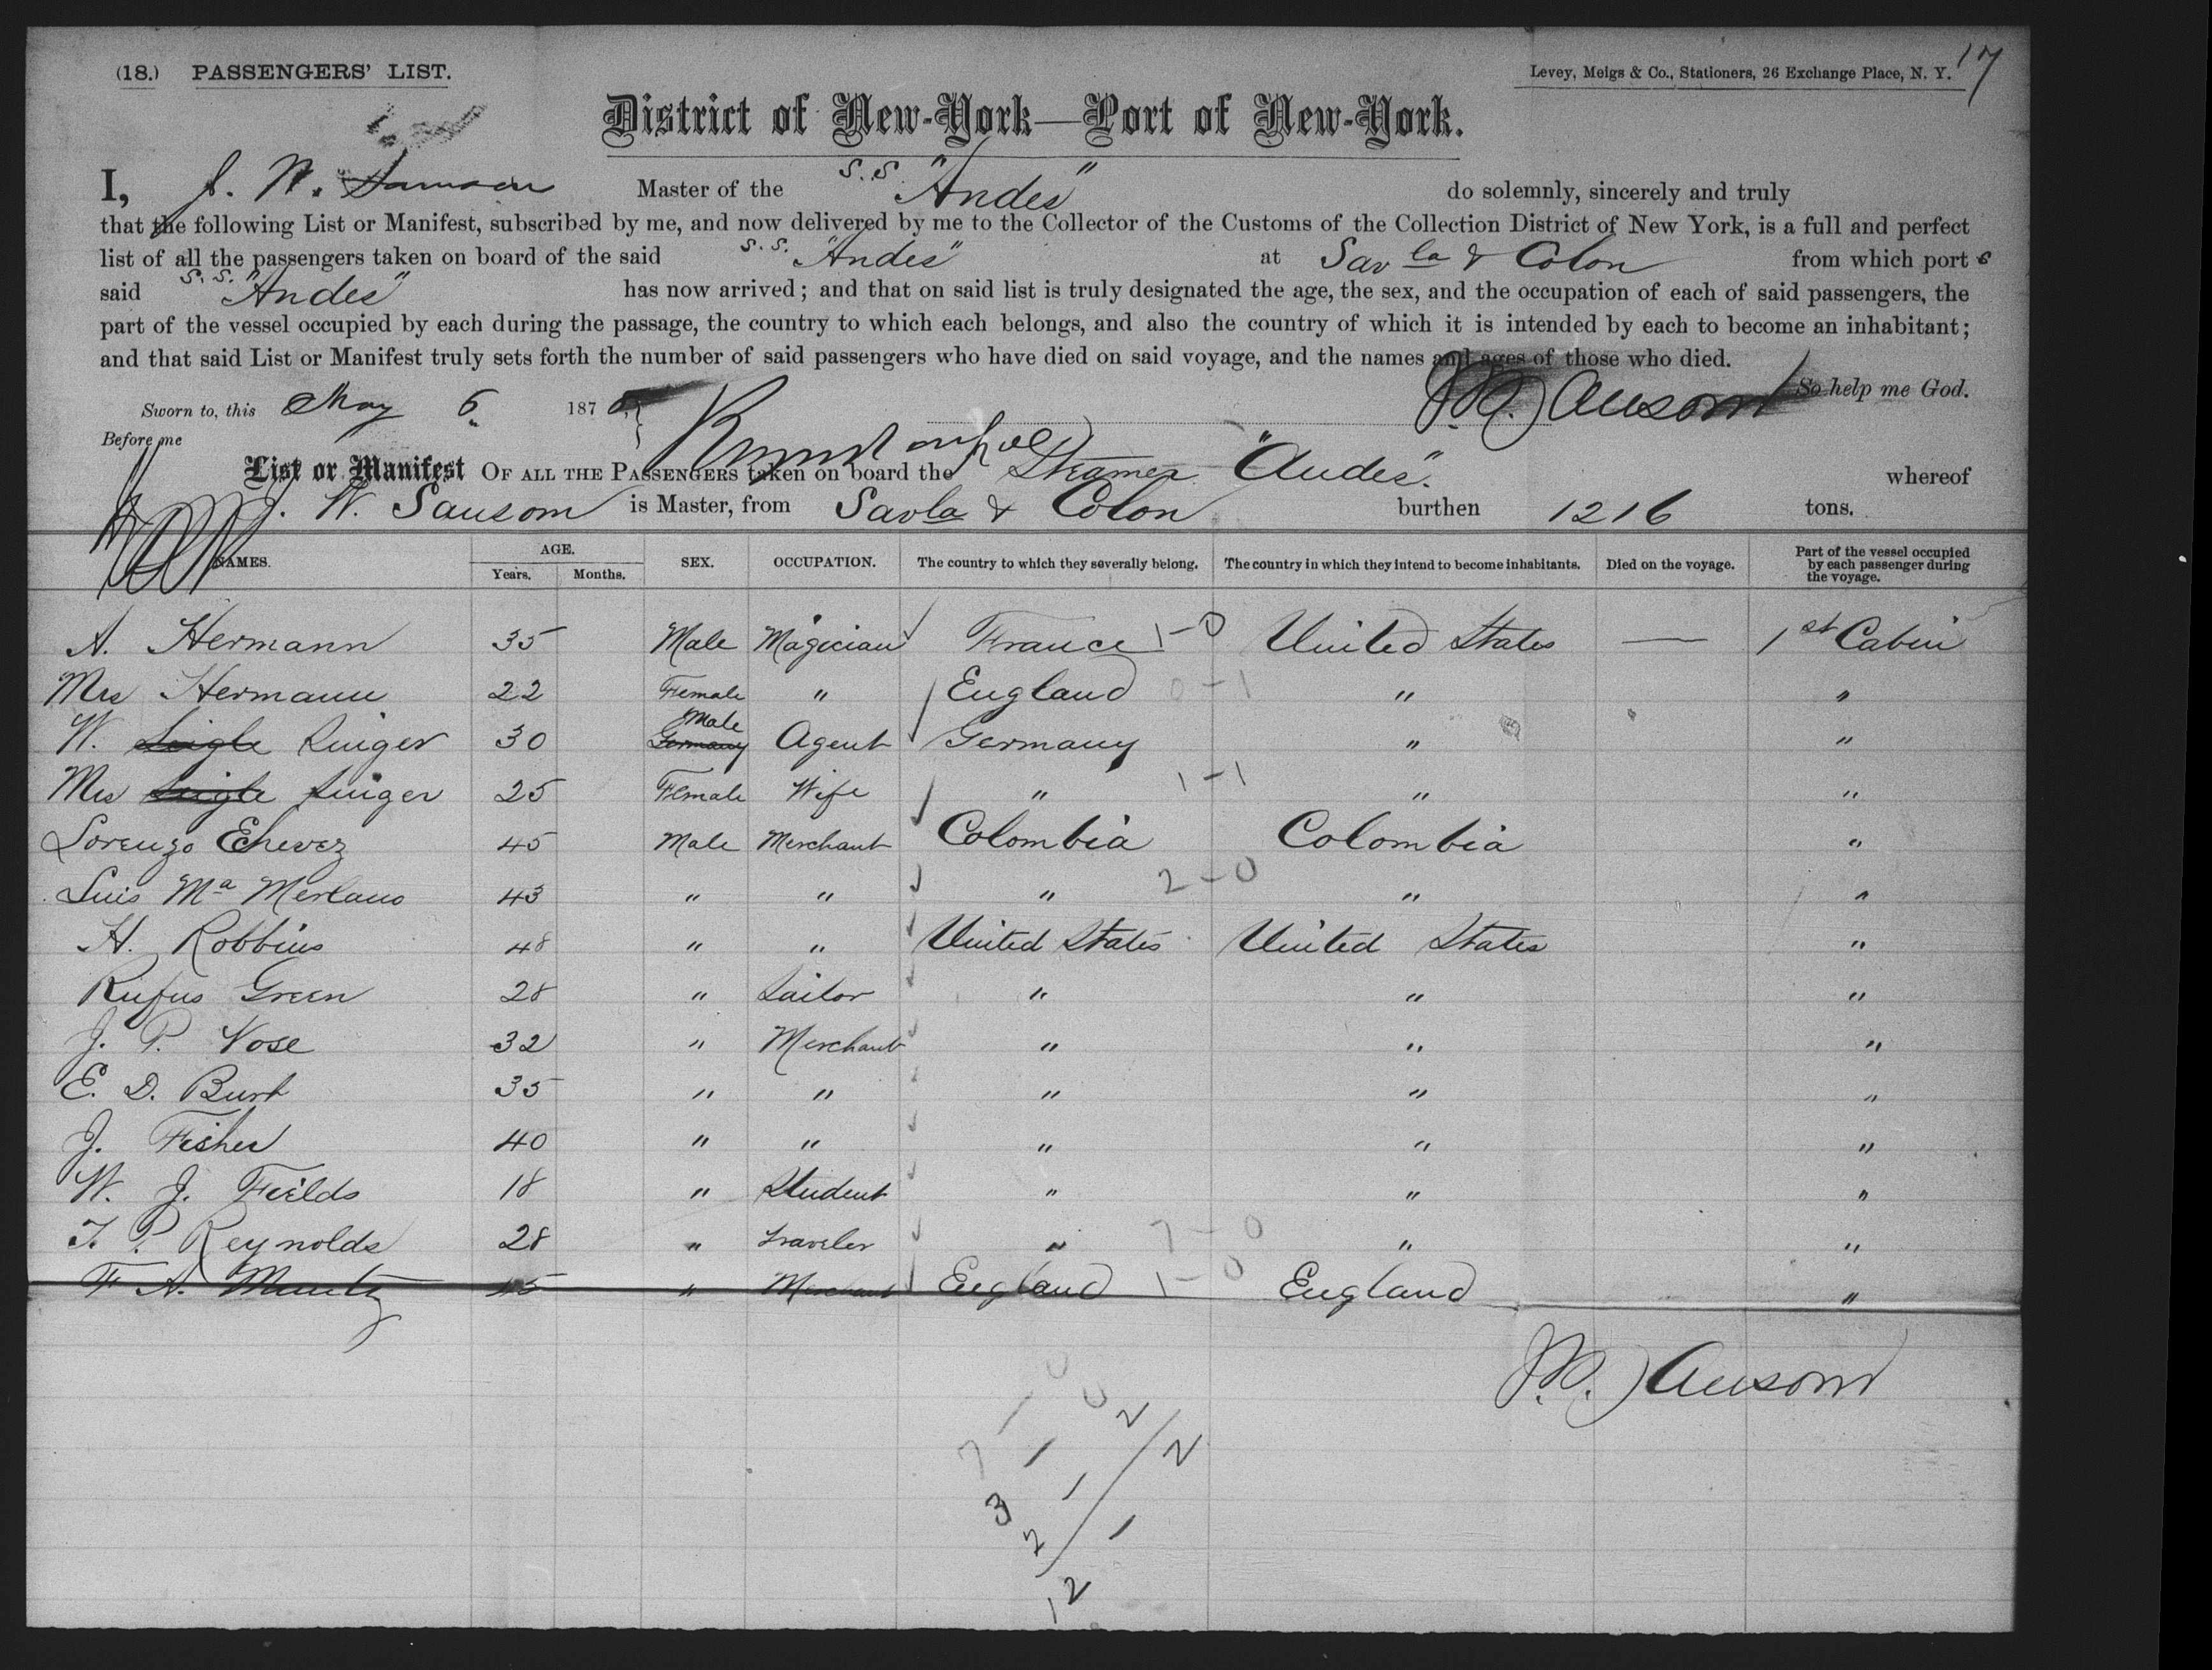 (18.) PASSENGERS' LIST.
Levey, Meigs & Co., Stationers, 26 Exchange Place, N. Y. 17
District of New-York—Port of New-York.
I, J. W. Sansom Master of the S.S. "Andes" do solemnly, sincerely and truly
that the following List or Manifest, subscribed by me, and now delivered by me to the Collector of the Customs of the Collection District of New York, is a full and perfect
list of all the passengers taken on board of the said S.S. "Andes" at Savla & Colon from which port s
said S.S. "Andes" has now arrived; and that on said list is truly designated the age, the sex, and the occupation of each of said passengers, the
part of the vessel occupied by each during the passage, the country to which each belongs, and also the country of which it is intended by each to become an inhabitant;
and that said List or Manifest truly sets forth the number of said passengers who have died on said voyage, and the names and ages of those who died.
So help me God.
Sworn to, this May 6 187 J.W. Sansom
Before me
List or Manifest OF ALL THE PASSENGERS taken on board the Steamer "Andes". whereof
J. W. Sansom is Master, from Savla & Colon burthen 1216 tons.
NAMES. AGE. Years. Months. SEX. OCCUPATION. The country to which they severally belong. The country in which they intend to become inhabitants. Died on the voyage. Part of the vessel occupied by each passenger during the voyage.
A. Hermann 35 Male Magician France 1-0 United States — 1st Cabin
Mrs Hermann 22 Female " England 0-1 " "
W. Singer 30 Male Germany Agent Germany " "
Mrs Singer 25 Female Wife " 1-1 " "
Lorenzo 45 Male Merchant Colombia Colombia "
Luis Ma Merlano 43 " " " 2-0 " "
H. Robbins 48 " " United States United States "
Rufus Green 28 " Sailor " " "
J. P. Vose 32 " Merchant " " "
E. D. Burt 35 " " " " "
J. Fisher 40 " " " " "
W. J. Fields 18 " Student " " "
T. P. Reynolds 28 " Traveler " 7-0 " "
F. A. Muntz 45 " Merchant England 1-0 England "
J.W. Sansom